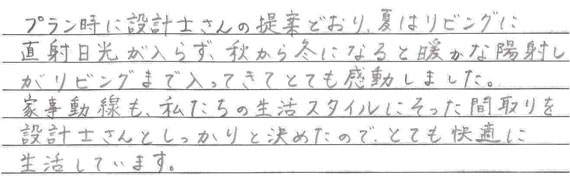 プラン時に設計士さんの提案どおり、夏はリビングに
直射日光が入らず、秋から冬になると暖かな陽射し
がリビングまで入ってきてとても感動しました。
家事動線も、私たちの生活スタイルにそった間取りを
設計士さんとしっかりと決めたので、とても快適に
生活しています。